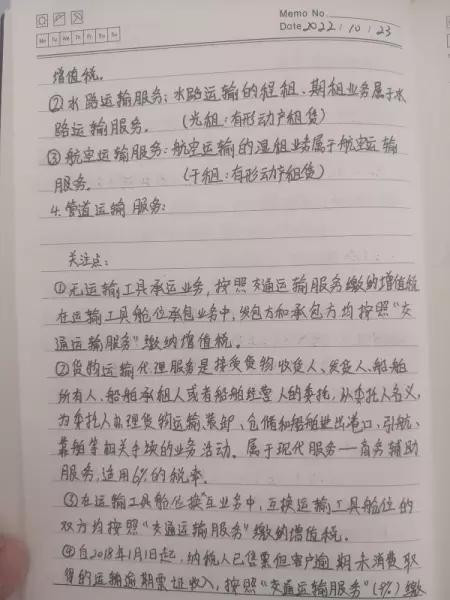 Memo No.
Mo Tu We Th Fr Sa Su
Date 2022.10.23
增值税。
②水路运输服务：水路运输的程租、期租业务属于水
路运输服务。（光租：有形动产租赁）
③航空运输服务：航空运输的湿租业务属于航空运输
服务。（干租：有形动产租赁）
4.管道运输服务：
关注点：
①无运输工具承运业务，按照交通运输服务缴纳增值税
在运输工具舱位承包业务中，发包方和承包方均按照“交
通运输服务”缴纳增值税。
②货物运输代理服务是接受货物收货人、发货人、船舶
所有人、船舶承租人或者船舶经营人的委托，以委托人名义，
为委托人办理货物运输、装卸、仓储和船舶进出港口、引航、
靠舶等相关手续的业务活动。属于现代服务——商务辅助
服务，适用6%的税率。
③在运输工具舱位换互业务中，互换运输工具舱位的
双方均按照“交通运输服务”缴纳增值税。
④自2018年1月1日起，纳税人已售票但客户逾期未消费取
得的运输逾期票证收入，按照“交通运输服务”（9%）缴